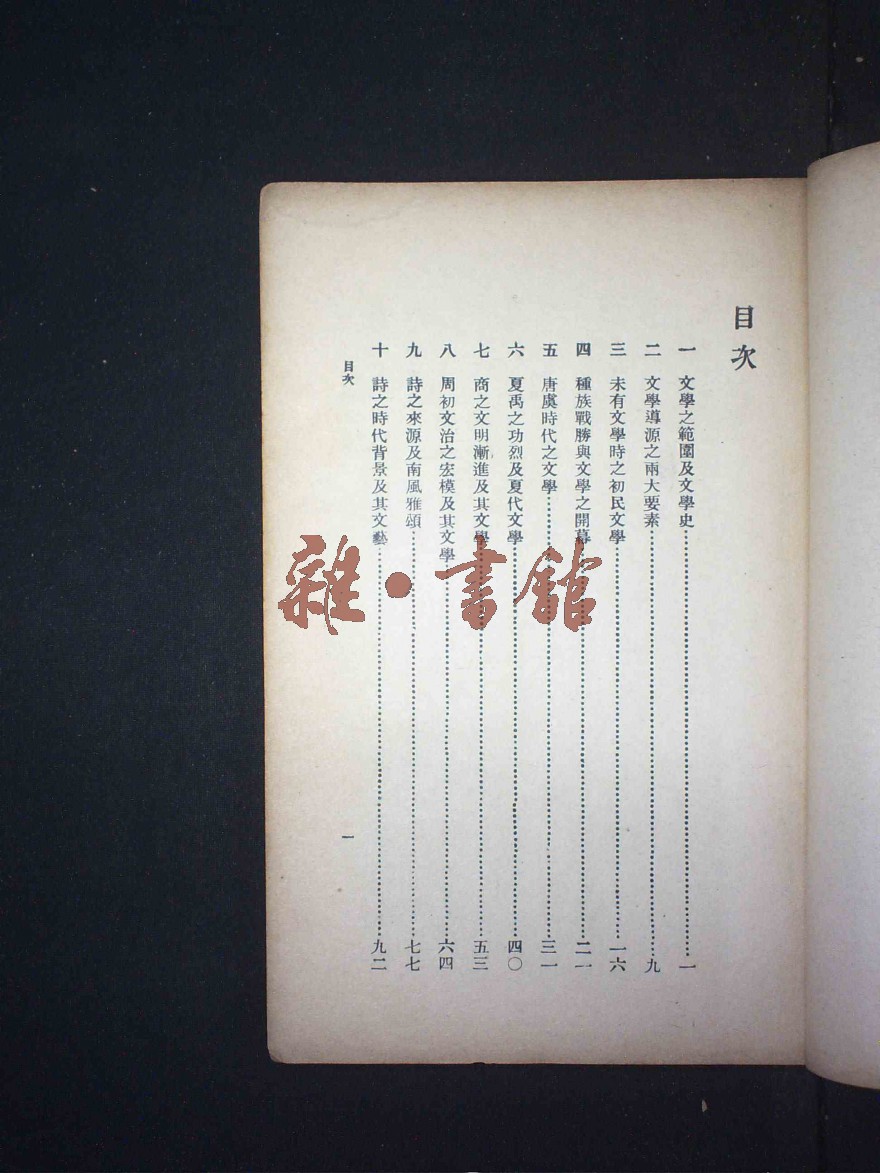 目次
一　文學之範圍及文學史…………一
二　文學導源之兩大要素…………九
三　未有文學時之初民文學…………一六
四　種族戰勝與文學之開幕…………二一
五　唐虞時代之文學…………三一
六　夏禹之功烈及夏代文學…………四〇
七　商之文明漸進及其文學…………五三
八　周初文治之宏模及其文學…………六四
九　詩之來源及南風雅頌…………七七
十　詩之時代背景及其文藝…………九二
目次
一
雜·書館